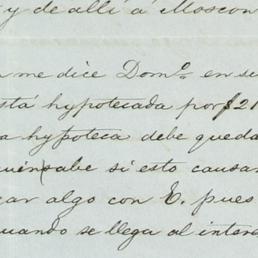 y de alli á Moscow
me dice Domº en se
stá hypotecada por $21
a hypoteca debé queda
quien sabe si esto causar
ar algo con E, pues
uando se llega al intere